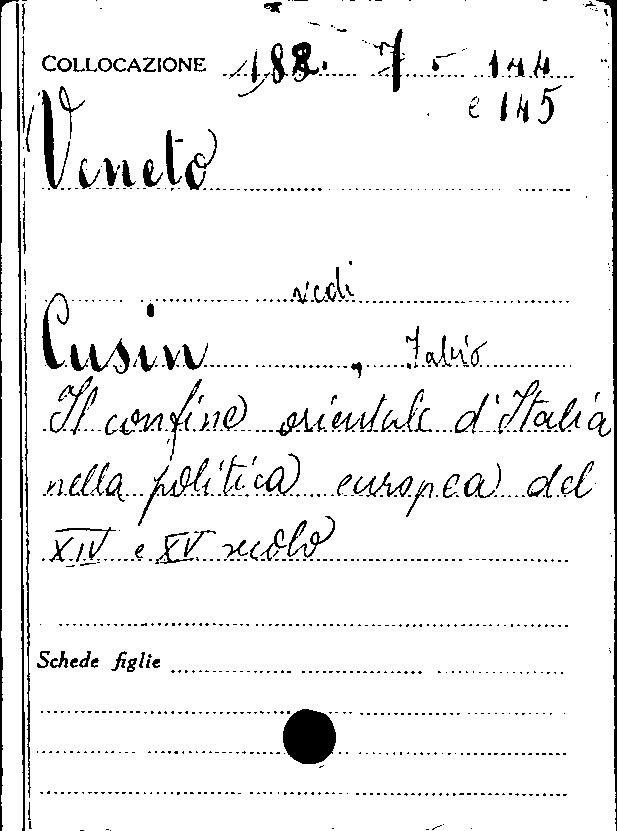 COLLOCAZIONE 188. 7 - 144
e 145
Veneto
vedi
Cusin, Fabio
Il confine orientale d'Italia
nella politica europea del
XIV e XV secolo
Schede figlie